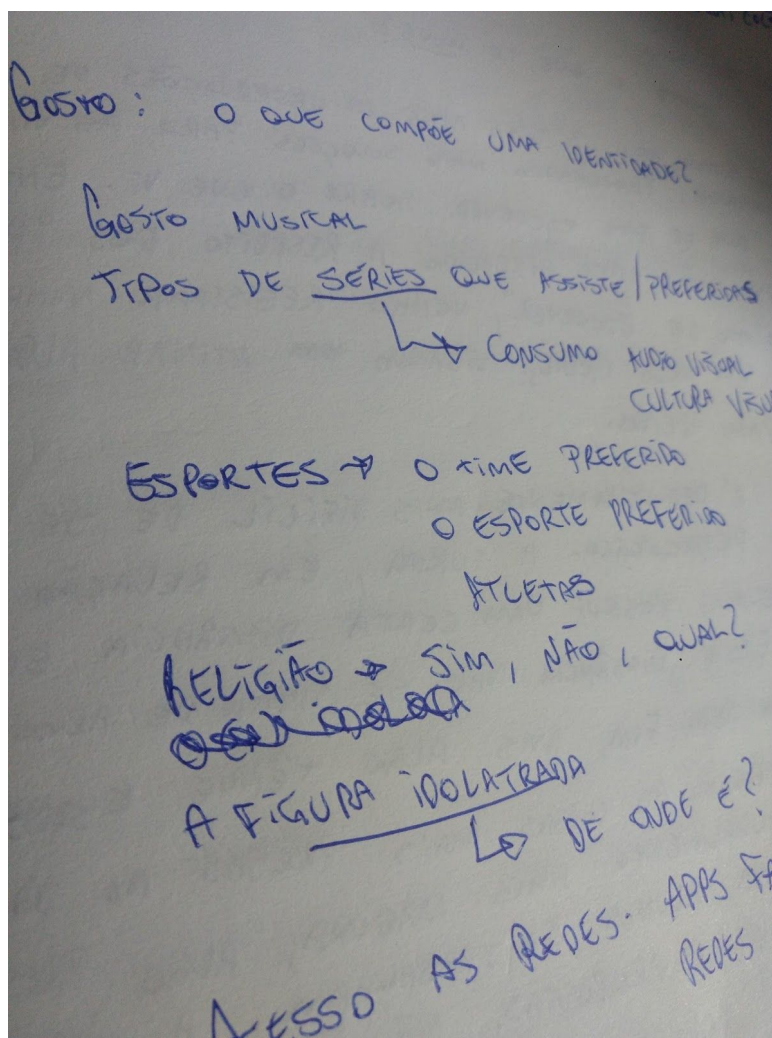 GOSTO: O QUE COMPÕE UMA IDENTIDADE?
GOSTO MUSICAL
TIPOS DE SÉRIES QUE ASSISTE/PREFERIDAS
→ CONSUMO AUDIO VISUAL
CULTURA VISU
ESPORTES → O TIME PREFERIDO
O ESPORTE PREFERIDO
ATLETAS
RELIGIÃO → SIM, NÃO, QUAL?
A FIGURA IDOLATRADA
→ DE ONDE É?
ACESSO AS REDES. APPS FA
REDES